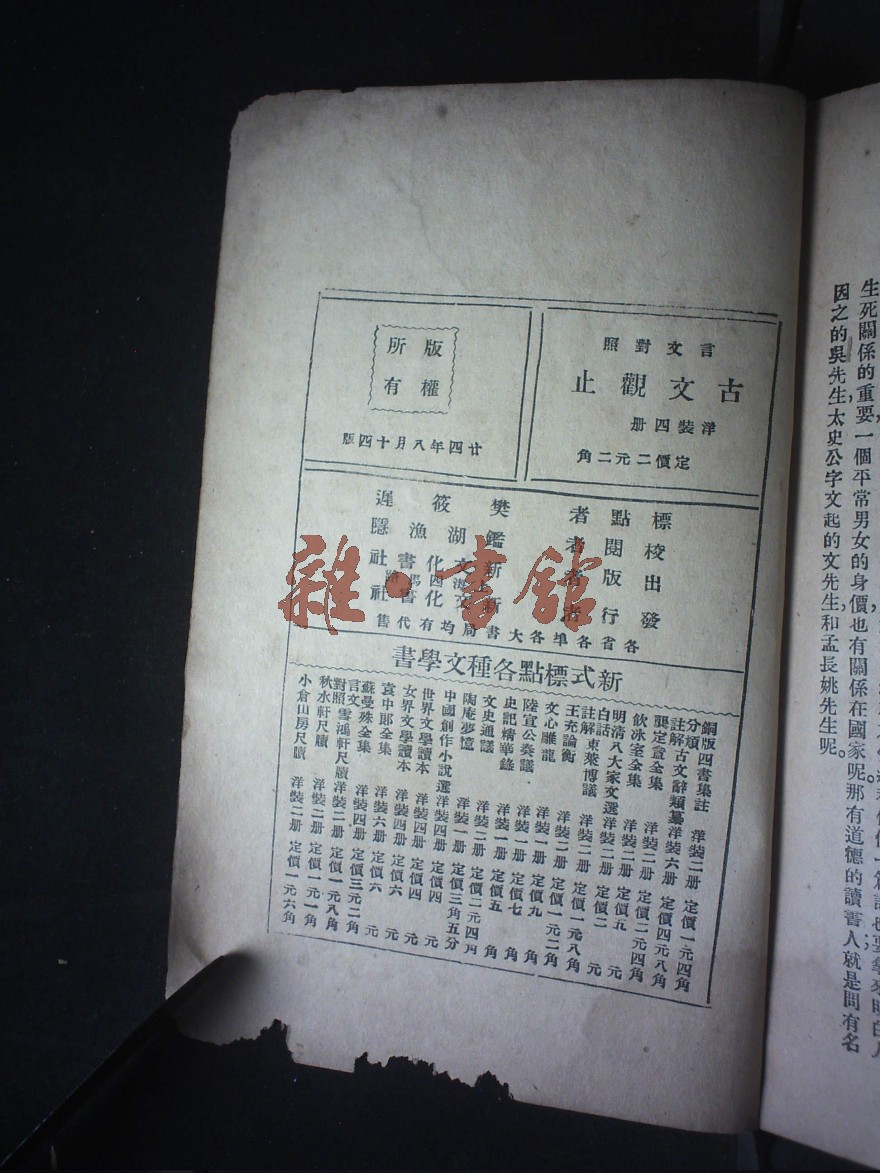 言文對照
古文觀止
洋裝四册
定價二元二角
版權
所有
廿四年八月十四版
標點者 樊筱遲
校閱者 鑑湖漁隱
出版者 新文化書社
發行者 新文化書社
各省各埠各大書局均有代售
新式標點各種文學書
銅版四書集註 洋裝二册 定價一元四角
分類註解古文辭類纂 洋裝六册 定價四元八角
龔定盦全集 洋裝二册 定價二元四角
飲冰室全集 洋裝四册 定價五元
明清八大家文選 洋裝二册 定價二元
白話註解東萊博議 洋裝四册 定價一元八角
王充論衡 洋裝二册 定價一元二角
文心雕龍 洋裝一册 定價九角
陸宣公奏議 洋裝一册 定價七角
史記精華錄
文史通議 洋裝二册
陶庵夢憶 洋裝一册 定價三角五分
中國創作小說選 洋裝四册
世界文學讀本 洋裝四册 定價四元
女界文學讀本 洋裝四册 定價四元
袁中郎全集 洋裝六册 定價六元
蘇曼殊全集 洋裝四册 定價三元二角
言文對照雪鴻軒尺牘 洋裝二册 定價一元八角
秋水軒尺牘 洋裝二册 定價一元一角
小倉山房尺牘 洋裝二册 定價一元六角
雜·書館
生死關係的重要,一個平常男女的身價,也有關係在國家呢,那有道德的讀書人,就是問有名
因之的吳先生,太史公字文起的文先生,和孟長姚先生呢。